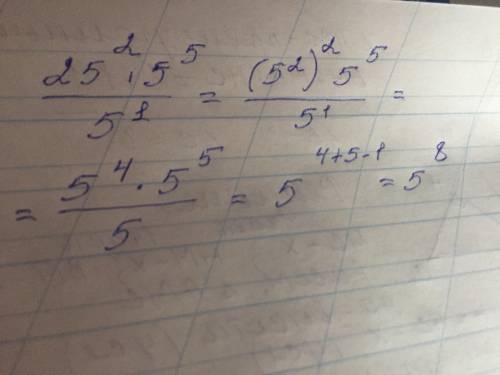 25² · 5⁵ / 5¹ = (5²)² 5⁵ / 5¹ =
= 5⁴ · 5⁵ / 5 = 5⁴⁺⁵⁻¹ = 5⁸